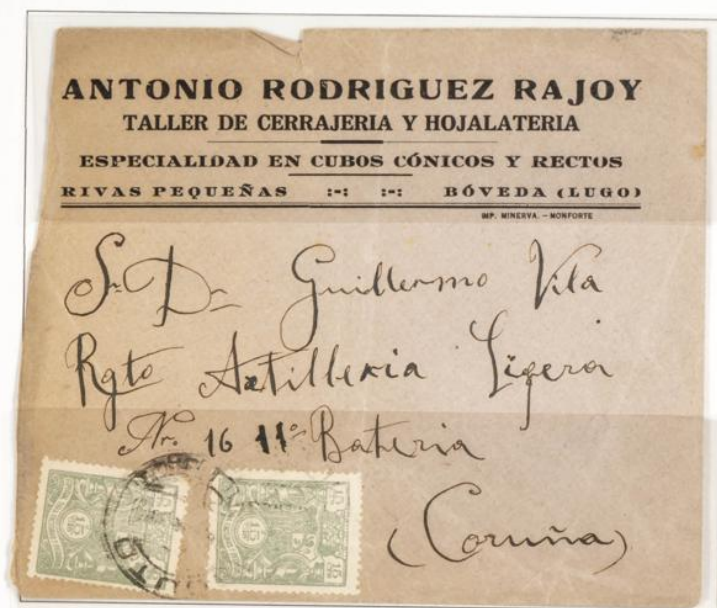 ANTONIO RODRIGUEZ RAJOY
TALLER DE CERRAJERIA Y HOJALATERIA
ESPECIALIDAD EN CUBOS CÓNICOS Y RECTOS
RIVAS PEQUEÑAS :-: :-: BÓVEDA (LUGO)
IMP. MINERVA. - MONFORTE
Sr. Dr. Guillermo Vila
Rgto Artilleria Ligera
Nr. 16 11º Bateria
(Coruña)
15 15
15 15